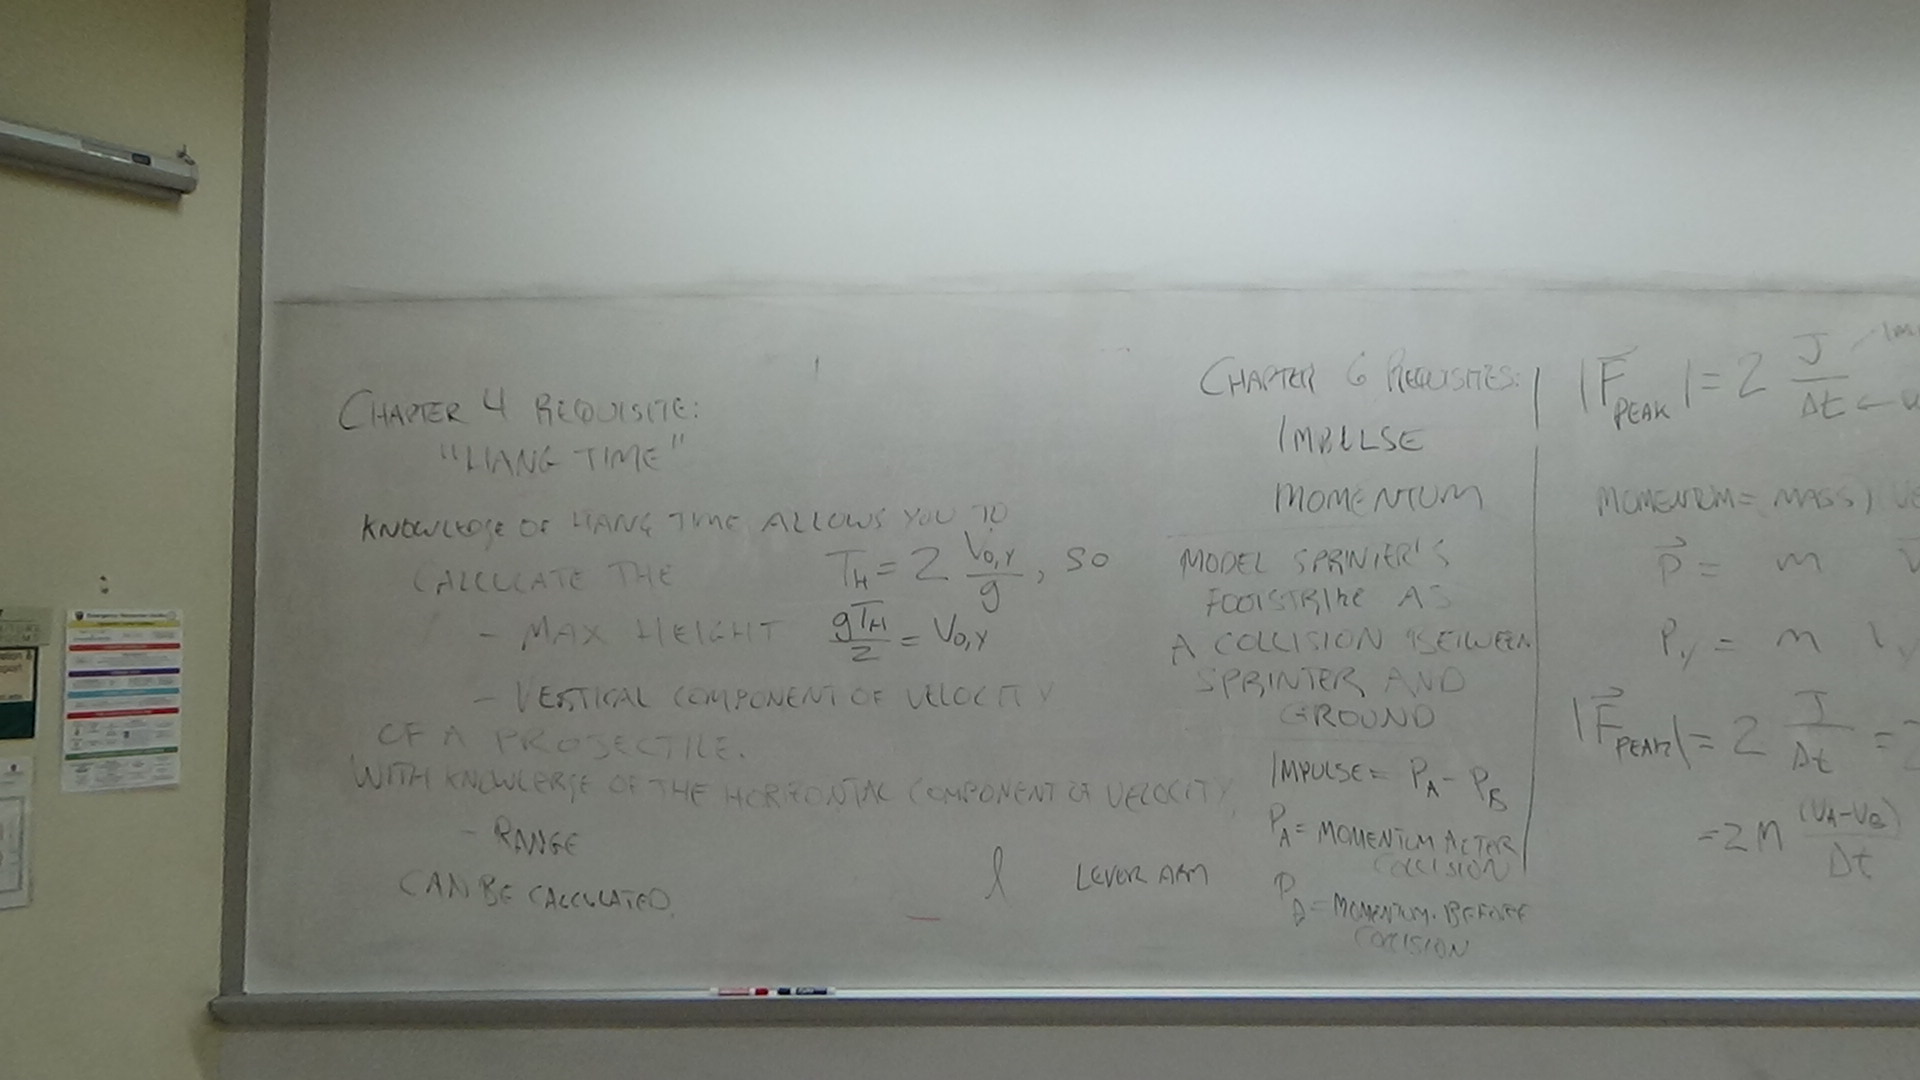 CHAPTER 4 REQUISITE:
"HANG TIME"
KNOWLEDGE OF HANG TIME ALLOWS YOU TO
CALCULATE THE
T_H = 2 V_{0,Y}/g, SO
- MAX HEIGHT
gT_H/2 = V_{0,Y}
- VERTICAL COMPONENT OF VELOCITY
OF A PROJECTILE.
WITH KNOWLEDGE OF THE HORIZONTAL COMPONENT OF VELOCITY,
- RANGE
CAN BE CALCULATED.
l LEVER ARM
CHAPTER 6 REQUISITES:
IMPULSE
MOMENTUM
MODEL SPRINTER'S
FOOTSTRIKE AS
A COLLISION BETWEEN
SPRINTER AND
GROUND
IMPULSE = P_A - P_B
P_A = MOMENTUM AFTER
COLLISION
P_B = MOMENTUM BEFORE
COLLISION
|F⃗_PEAK| = 2 J/Δt ←
MOMENTUM = MASS)
p⃗ = m
P_y = m
|F⃗_PEAK| = 2 J/Δt =
= 2M (V_A-V_B)/Δt